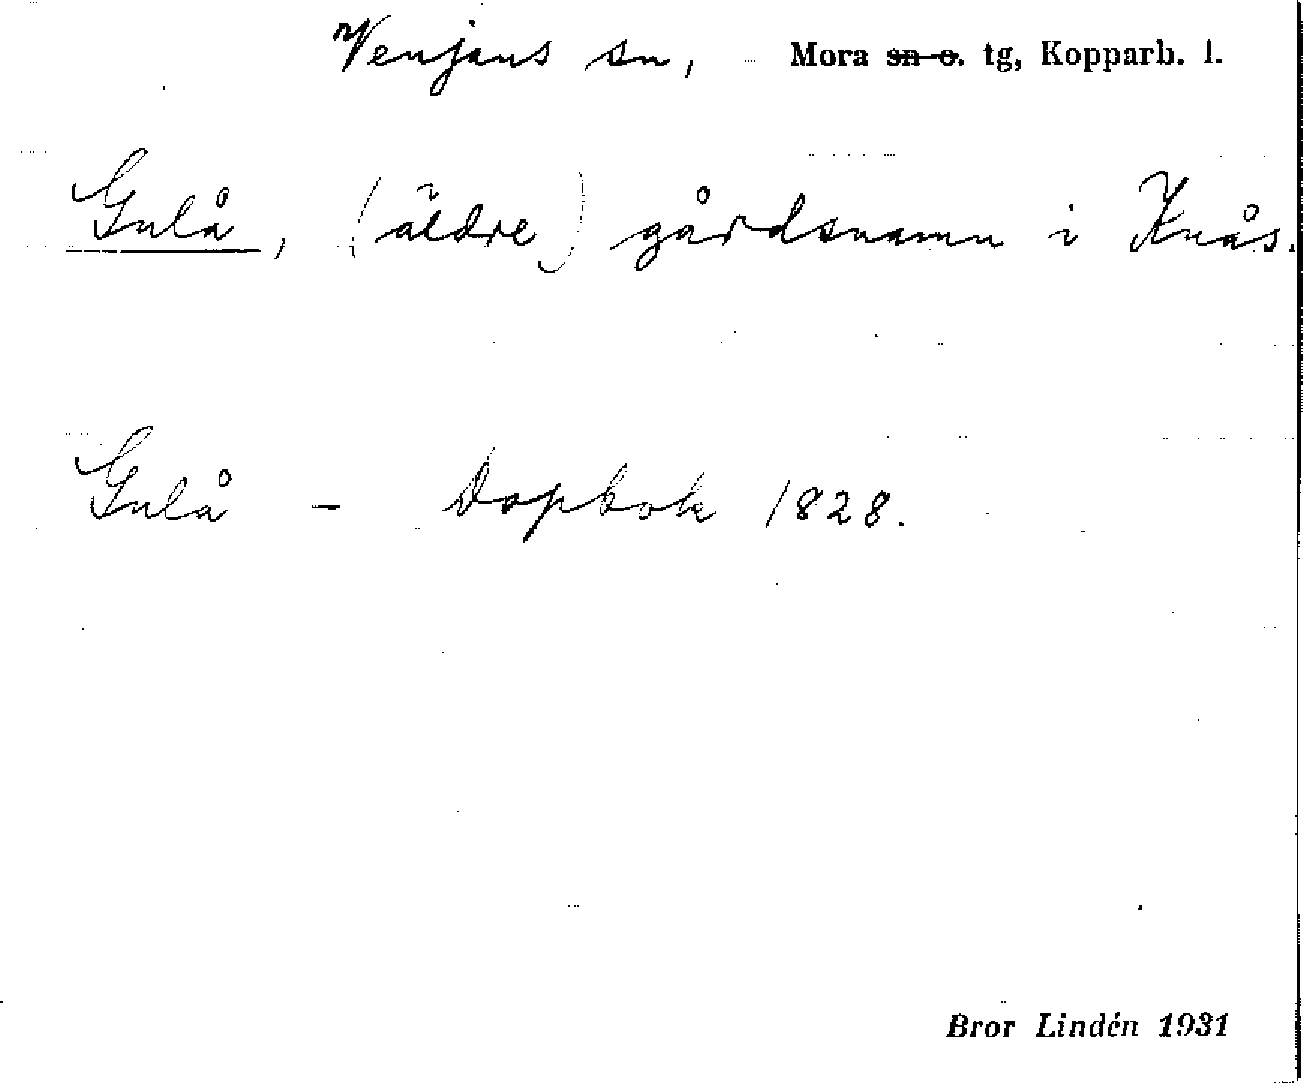 Venjans sn, Mora sn o. tg, Kopparb. l.
Gulå, (äldre) gårdsnamn i Knås.
Gulå - Dopbok 1828.
Bror Lindén 1931